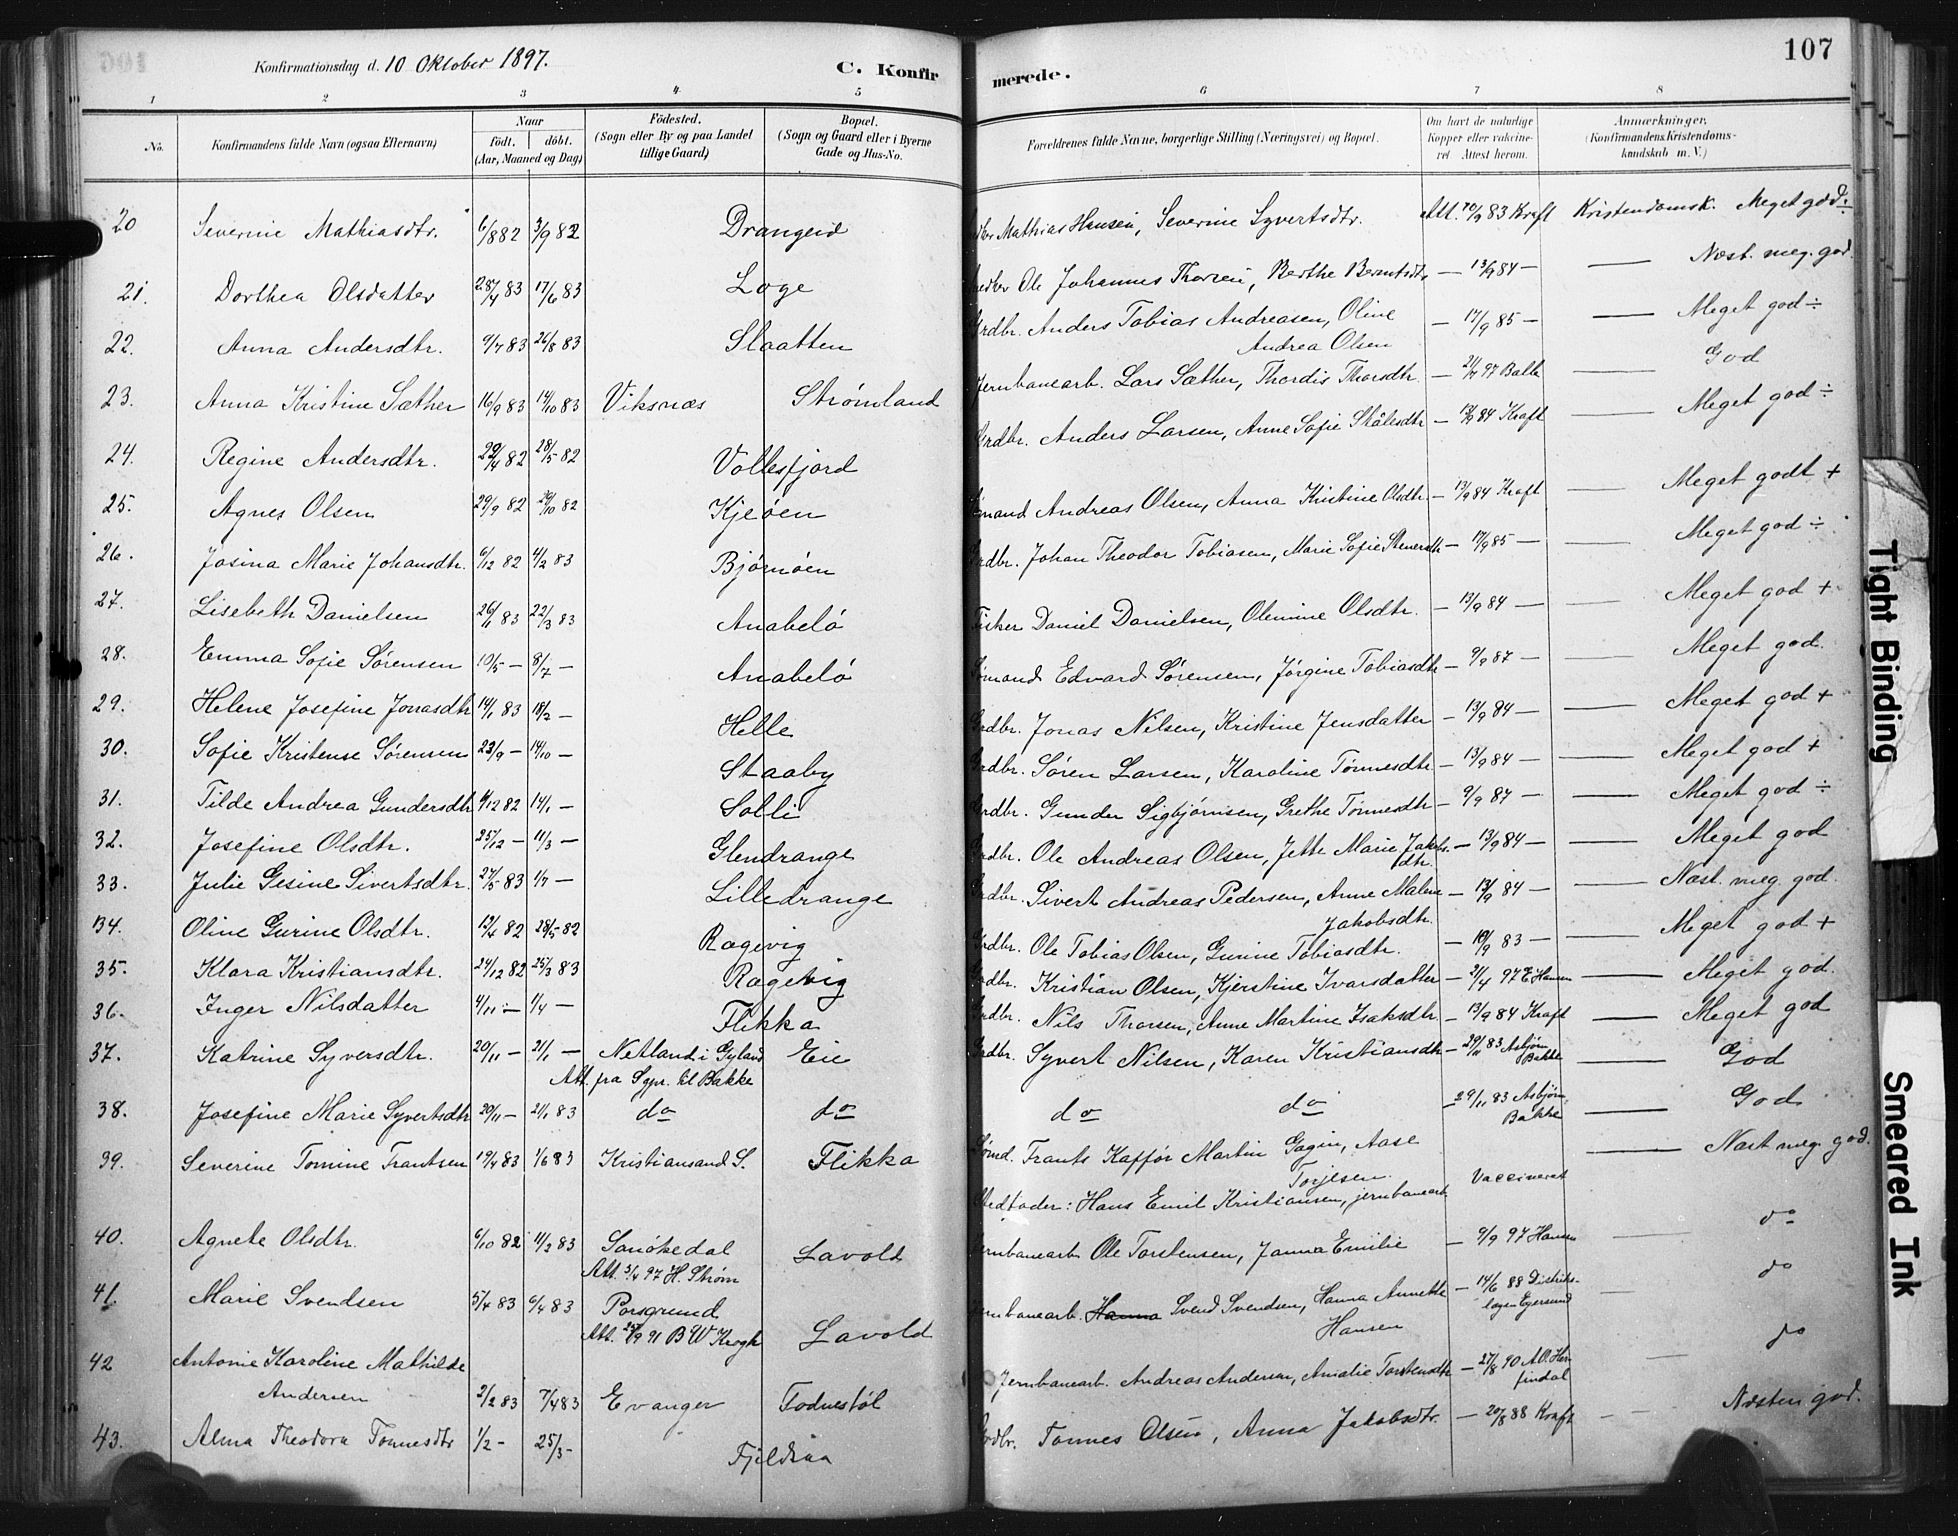 107
Konfirmationsdag d. 10 Oktober 1897.
C. Konfir merede.
1 2 3 4 5 6 7 8
No. Konfirmandens fulde Navn (ogsaa Efternavn) Naar födt. döbt. (Aar, Maaned og Dag) Födested. (Sogn eller By og paa Landet tillige Gaard) Bopæl. (Sogn og Gaard eller i Byerne Gade og Hus-No. Forældrenes fulde Navne, borgerlige Stilling (Næringsvei) og Bopæl. Om havt de naturlige Kopper eller vakcineret Attest herom. Anmærkninger, (Konfirmandens Kristendomskundskab m. V.)
20 Severine Mathiasdtr. 6/8 82 3/9 82 Drangeid Mathias Hansen, Severine Syvertsdtr. Att. 83 Kraft Kristendomsk. Meget god ÷
21. Dorthea Olsdatter 28/4 83 17/6 83 Loge Ole Johannes Thorsen, Berthe Berntsdtr — 13/9 84 — — Næst. meg. god.
22. Anna Andersdtr. 9/7 83 26/8 83 Slaatten Grdbr. Anders Tobias Andreasen, Oline — 17/9 85 — — Meget god ÷
Andrea Olsen
23. Anna Kristine Sæther 16/9 83 14/10 83 Viksnæs Strömland Jernbanearb. Lars Sæther, Thordis Thorsdtr. — 97 Balle — God
24. Regine Andersdtr. 29/4 82 28/5 82 Vollesfjord Grdbr. Anders Larsen, Anne Sofie Ståledtr — 13/9 84 Kraft — Meget god ÷
25. Agnes Olsen 29/9 82 29/10 82 Kjeöen Sömand Andreas Olsen, Anna Kristine Olsdtr — 13/9 84 Kraft — Meget godt +
26. Josina Marie Johansdtr. 6/12 82 4/2 83 Bjørnøen Grdbr. Johan Theodor Tobiasen, Marie Sofie — 17/9 85 — — Meget god ÷
27. Lisebeth Danielsen 26/1 83 22/3 83 Anabelö Fisker Daniel Danielsen, Olemine Olsdtr. — 13/9 84 — — Meget god +
28. Emma Sofie Sørensen 10/5 — 8/7 — Anabelö Sømand Edvard Sørensen, Jørgine Tobiasdtr — 9/9 87 — — Meget god.
29. Helene Josefine Jonasdtr 14/1 83 18/2 — Helle Grdbr. Jonas Nilsen, Kristine Jensdatter — 13/9 84 — — Meget god +
30. Sofie Kristense Sørensen 23/9 — 14/10 — Staaby Grdbr. Søren Larsen, Karoline Tönnesdtr. — 13/9 84 — — Meget god +
31. Tilde Andrea Gundersdtr 12 82 14/1 — Solli Grdbr. Gunder Sigbjørnsen, Grethe Tönnesdtr — 9/9 87 — — Meget god ÷
32. Josefine Olsdtr. 25/12 — 11/3 — Glendrange Grdbr. Ole Andreas Olsen, Jette Marie Jakobs. dtr. — 13/9 84 — — Meget god
33. Julie Gesine Sivertsdtr. 27/5 83 1/7 — Lilledrange Grdbr. Sivert Andreas Pedersen, Anne Malene — 13/9 84 — — Næst. meg. god.
Jakobsdtr.
34. Oline Gurine Olsdtr. 13/4 82 28/5 82 Rægevig Grdbr. Ole Tobias Olsen, Gurine Tobiasdtr. — 10/9 83 — — Meget god +
35. Klara Kristiansdtr. 24/12 82 25/3 83 Rægevig Grdbr. Kristian Olsen, Kjerstine Ivarsdatter — 2/4 97 E Hansen — Meget god.
36. Inger Nilsdatter 4/11 — 1/4 — Flikka Grdbr. Nils Thorsen, Anne Martine Isaksdtr — 13/9 84 Kraft — Meget god
37. Katrine Syversdtr. 20/11 — 2/1 — Netland i Gyland Eie Grdbr. Syvert Nilsen, Karen Kristiansdtr — 29/11 83 Asbjörn Bakke — God
Att. fra Sgpr. til Bakke
38. Josefine Marie Syvertsdtr 20/11 — 2/1 83 do do do do — 29/11 83 Asbjörn Bakke — God
39. Severine Tomine Frantsen 19/4 83 1/6 83 Kristiansand S. Flikka Sömd. Frants Kaffør Martin Gagin, Aase Torjesen. Vaccineret — Næst meg. god.
Stedfader: Hans Emil Kristiansen, jernbanearb
40. Agnete Olsdtr. 6/10 82 11/2 83 Sanökedal Lavold Jernbanearb Ole Torstensen, Janna Emilie — 9/9 97 Hansen — do
Att. 3/4 97 H. Strøm
41. Marie Svendsen 5/4 83 6/4 83 Porsgrund Lavold Jernbanearb. Hanna Svend Svendsen, Hanna Annette Hansen — 14/6 88 Distriktslægen Egersund — do
Att. 91 B W Krogh
42 Antonie Karoline Mathilde Andersen 2/2 83 7/4 83 Evanger Todnestöl Jernbanearb. Andreas Andersen, Amalie Torstensdtr — 27/8 90 A.O. Herfindal — do
43. Alma Theodora Tönnesdtr 1/2 — 25/3 — Fjeldsaa Grdbr. Tönnes Olsen, Anna Jakobsdtr. — 20/8 88 Kraft — Næsten god.
Tight Binding
Smeared Ink